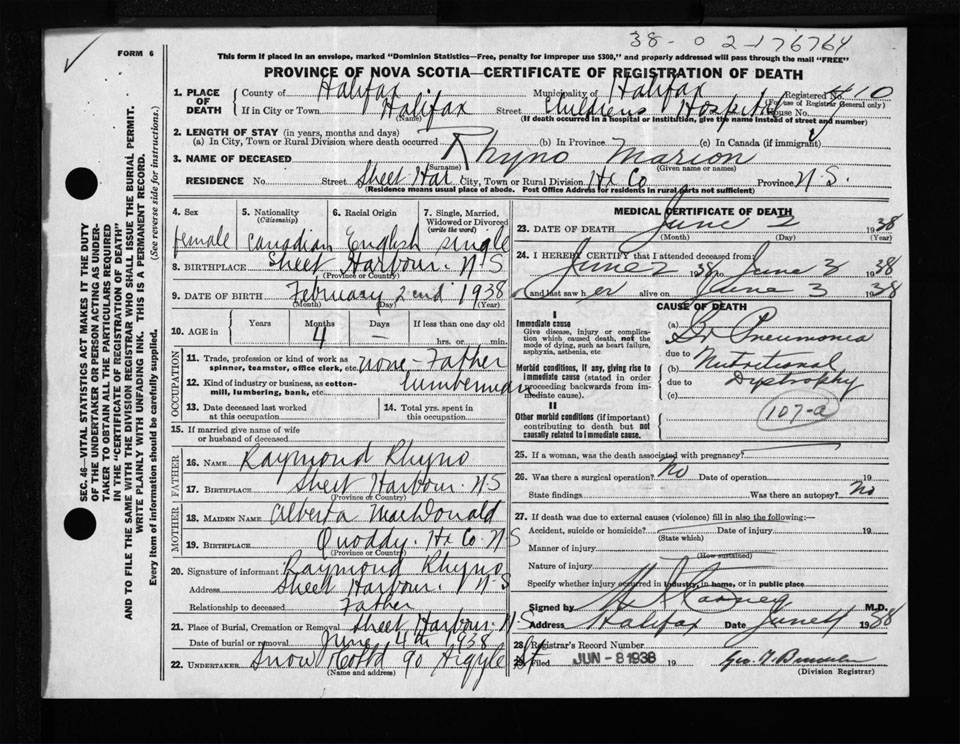 38-02-176764
FORM 6
This form if placed in an envelope, marked "Dominion Statistics—Free, penalty for improper use $300," and properly addressed will pass through the mail "FREE"
PROVINCE OF NOVA SCOTIA—CERTIFICATE OF REGISTRATION OF DEATH
1. PLACE OF DEATH County of Halifax Municipality of Halifax Registered No. 410
(For use of Registrar General only)
If in City or Town Halifax Street Childrens Hospital House No.
(Name) (If death occurred in a hospital or institution, give the name instead of street and number)
2. LENGTH OF STAY (in years, months and days)
(a) In City, Town or Rural Division where death occurred (b) In Province (c) In Canada (if immigrant)
3. NAME OF DECEASED Rhyno Marion
(Surname) (Given name or names)
RESIDENCE No. Street Sheet Har City, Town or Rural Division Hx Co Province N.S.
(Residence means usual place of abode. Post Office Address for residents in rural parts not sufficient)
4. Sex female
5. Nationality (Citizenship) Canadian
6. Racial Origin English
7. Single, Married, Widowed or Divorced (write the word) single
8. BIRTHPLACE Sheet Harbour. N-S
(Province or Country)
9. DATE OF BIRTH February 2nd 1938
(Month) (Day) (Year)
10. AGE in Years Months 4 Days — If less than one day old hrs. or min.
OCCUPATION
11. Trade, profession or kind of work as spinner, teamster, office clerk, etc. none - Father
12. Kind of industry or business, as cotton-mill, lumbering, bank, etc. lumberman
13. Date deceased last worked at this occupation
14. Total yrs. spent in this occupation
15. If married give name of wife or husband of deceased
FATHER
16. NAME Raymond Rhyno
17. BIRTHPLACE Sheet Harbour. N-S
(Province or Country)
MOTHER
18. MAIDEN NAME Alberta MacDonald
19. BIRTHPLACE Quoddy. Hx Co. N-S
(Province or Country)
20. Signature of informant Raymond Rhyno
Address Sheet Harbour. N-S
Relationship to deceased Father
21. Place of Burial, Cremation or Removal Sheet Harbour. N-S
Date of burial or removal June 4th 1938
22. UNDERTAKER Snow Co Ltd 90 Argyle St
(Name and address)
MEDICAL CERTIFICATE OF DEATH
23. DATE OF DEATH June 3 1938
(Month) (Day) (Year)
24. I HEREBY CERTIFY that I attended deceased from:
June 2 1938 to June 3 1938
and last saw her alive on June 3 1938
CAUSE OF DEATH
I
Immediate cause
Give disease, injury or complication which caused death, not the mode of dying, such as heart failure, asphyxia, asthenia, etc
(a) Br Pneumonia
due to
Morbid conditions, if any, giving rise to immediate cause (stated in order proceeding backwards from immediate cause).
(b) Nutritional
due to Dystrophy
(c)
107-a
II
Other morbid conditions (if important) contributing to death but not causally related to immediate cause.
25. If a woman, was the death associated with pregnancy?
26. Was there a surgical operation? No Date of operation 19
State findings Was there an autopsy? No
27. If death was due to external causes (violence) fill in also the following:—
Accident, suicide or homicide? Date of injury 19
(State which)
Manner of injury
(How sustained)
Nature of injury
Specify whether injury occurred in industry, in home, or in public place
Signed by M.D.
Address Halifax Date June 4 1938
28. Registrar's Record Number
29. Filed JUN - 8 1938 19
(Division Registrar)
SEC. 46—VITAL STATISTICS ACT MAKES IT THE DUTY
OF THE UNDERTAKER OR PERSON ACTING AS UNDER-
TAKER TO OBTAIN ALL THE PARTICULARS REQUIRED
IN THE "CERTIFICATE OF REGISTRATION OF DEATH"
AND TO FILE THE SAME WITH THE DIVISION REGISTRAR WHO SHALL ISSUE THE BURIAL PERMIT.
WRITE PLAINLY WITH UNFADING INK. THIS IS A PERMANENT RECORD.
Every item of information should be carefully supplied. (See reverse side for instructions.)